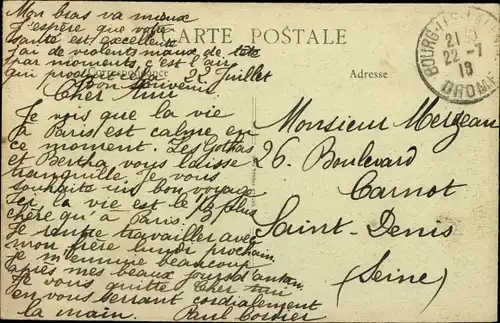 Mon bras va mieux
J'espère que votre
santé est excellente
J'ai de violents maux de tête
par moments, c'est l'air
qui
Bon souvenir
CARTE POSTALE
Correspondance
Adresse
BOURG-LES-VALENCE
21
22-7
18
DROME
22 Juillet
Cher Ami
Je vois que la vie
à Paris est calme en
ce moment. Les Gothas
et Bertha vous laisse
tranquille. Je vous
souhaite un bon voyage
Ici la vie est le 1/2 plus
chère qu'à Paris.
Je rentre travailler avec
mon frère lundi prochain.
Je m'ennuie beaucoup
après mes beaux jours d'antan.
Je vous quitte Cher
en vous serrant cordialement
la main. Paul Cordier
Monsieur Merzeau
26. Boulevard
Carnot
Saint-Denis
(Seine)